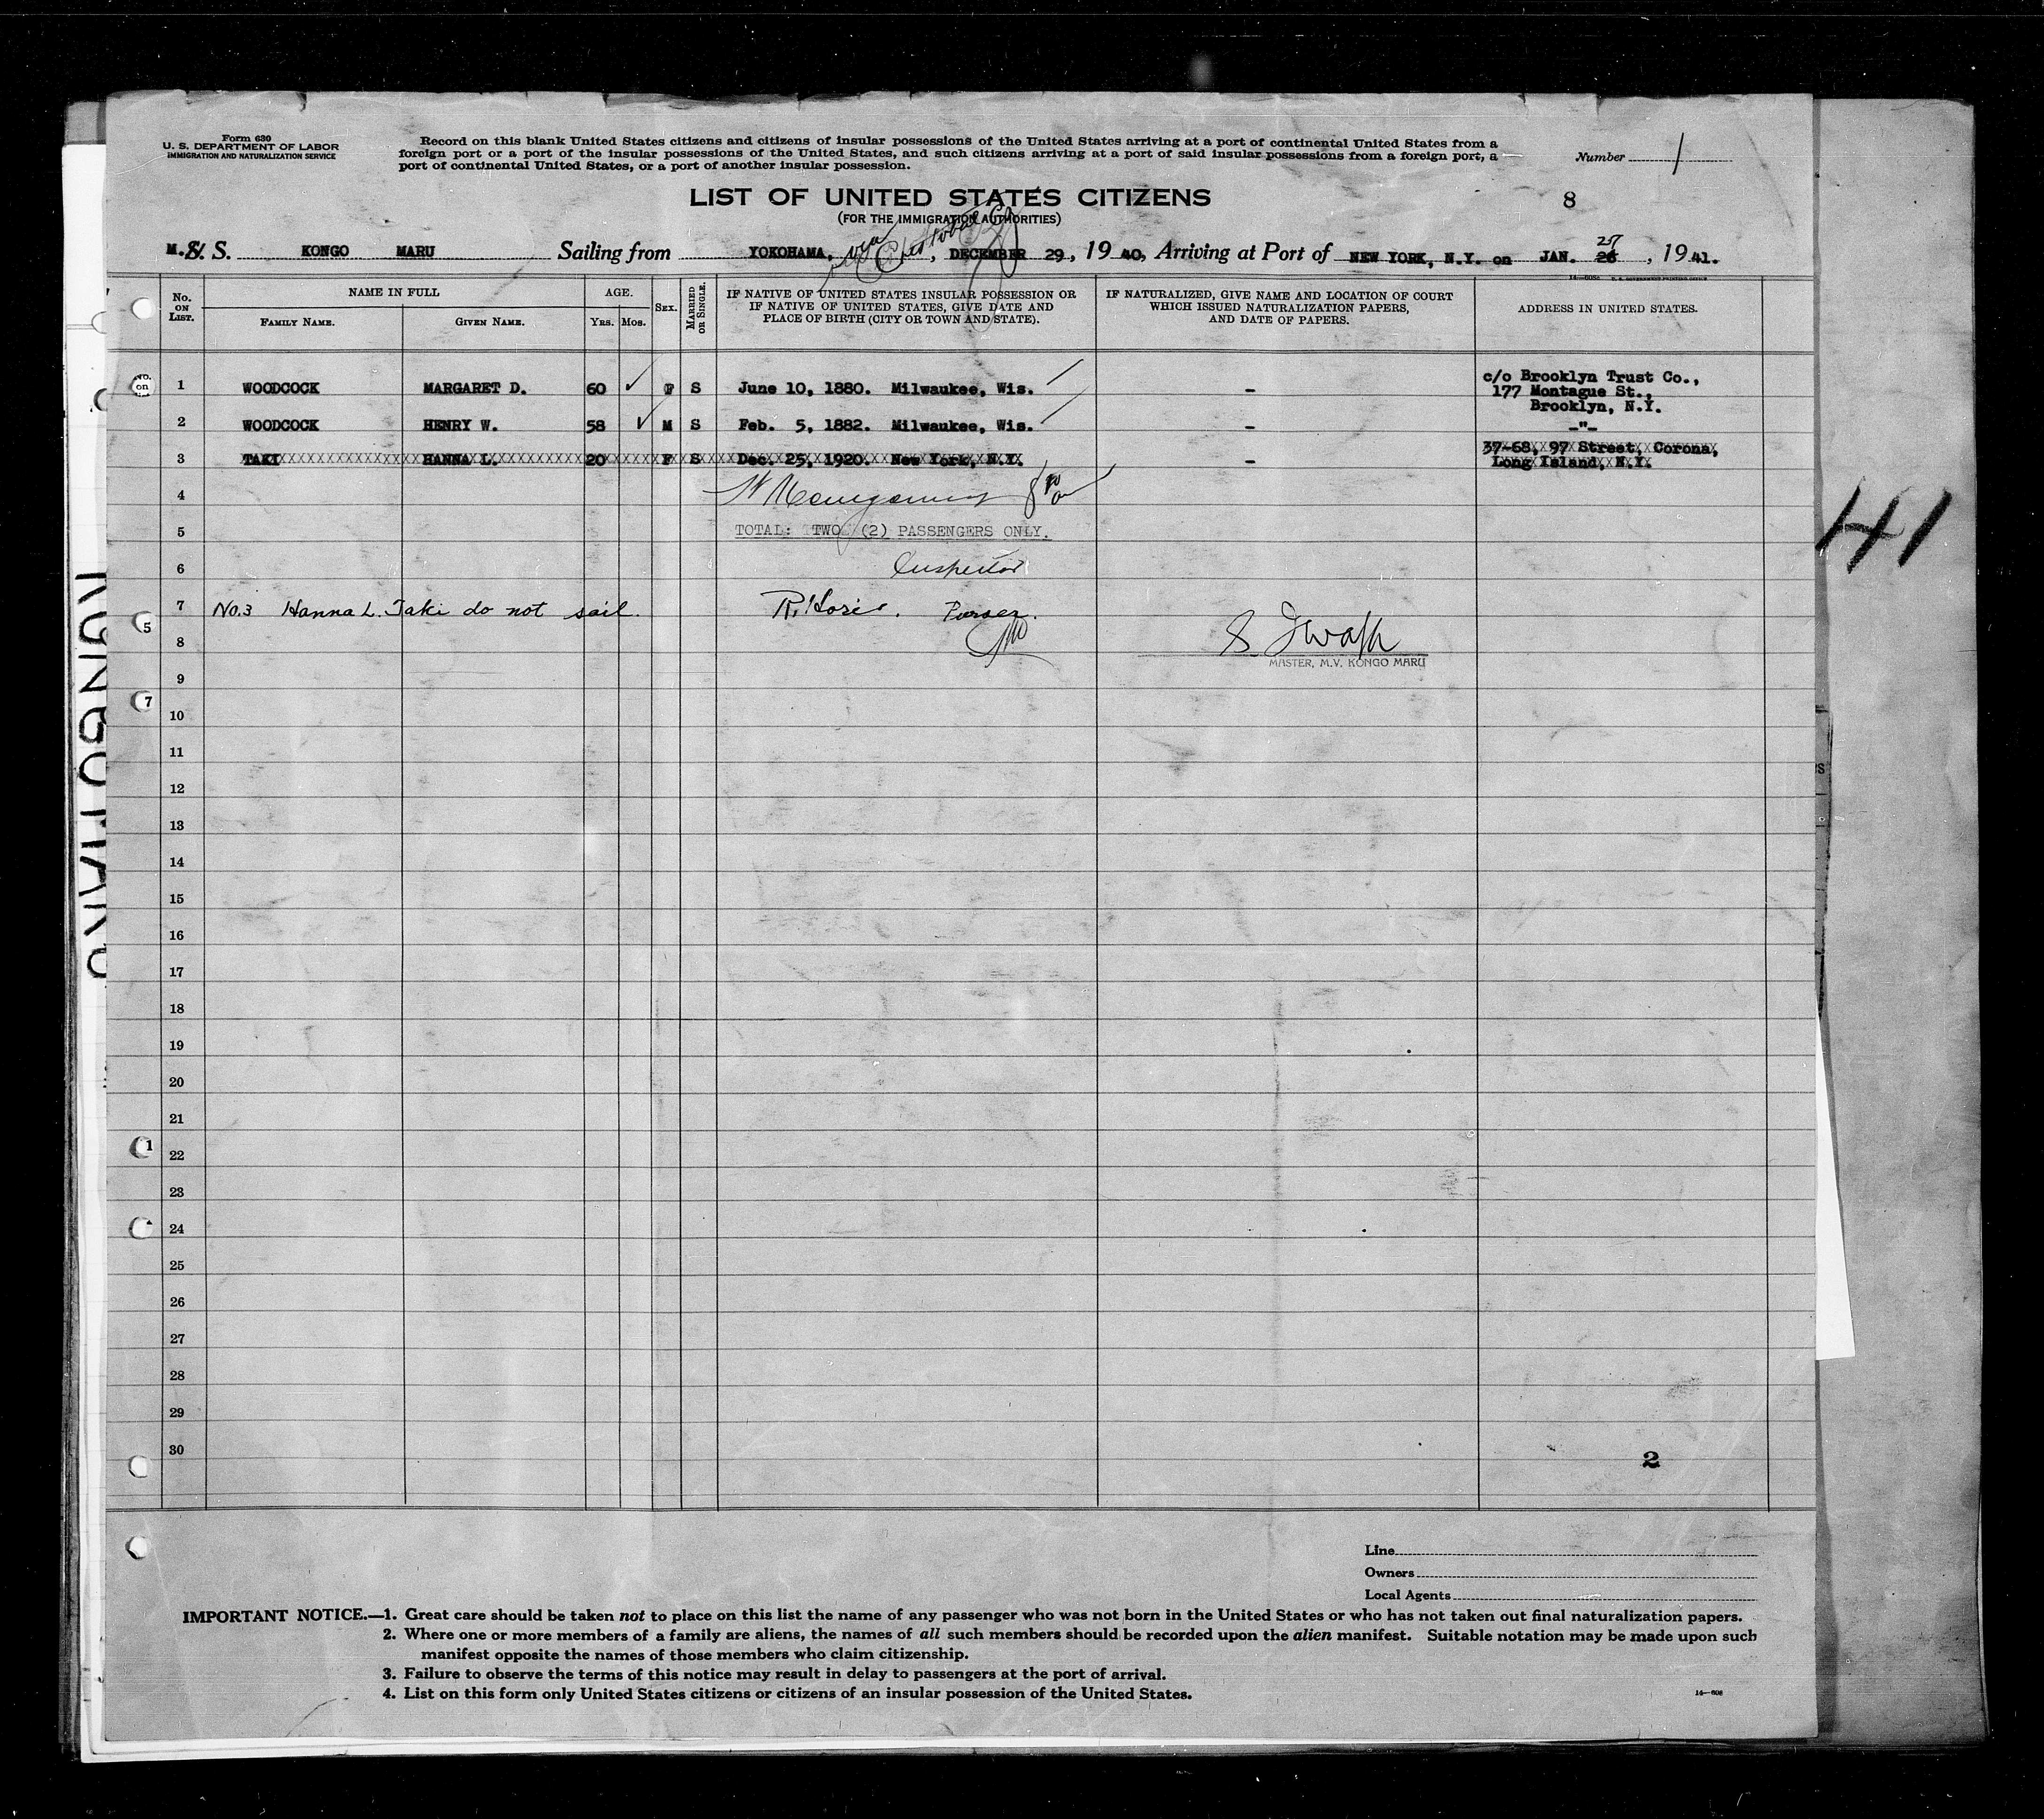 Form 630
U. S. DEPARTMENT OF LABOR
IMMIGRATION AND NATURALIZATION SERVICE
Record on this blank United States citizens and citizens of insular possessions of the United States arriving at a port of continental United States from a
foreign port or a port of the insular possessions of the United States, and such citizens arriving at a port of said insular possessions from a foreign port, a
port of continental United States, or a port of another insular possession.
Number 1
LIST OF UNITED STATES CITIZENS
8
(FOR THE IMMIGRATION AUTHORITIES)
via Cristobal C.Z.
M. S. KONGO MARU Sailing from YOKOHAMA, DECEMBER 29, 1940, Arriving at Port of NEW YORK, N.Y. on JAN. 26, 1941.
No. ON LIST.
NAME IN FULL
FAMILY NAME.
GIVEN NAME.
AGE.
YRS.
MOS.
SEX.
MARRIED OR SINGLE.
IF NATIVE OF UNITED STATES INSULAR POSSESSION OR
IF NATIVE OF UNITED STATES, GIVE DATE AND
PLACE OF BIRTH (CITY OR TOWN AND STATE).
IF NATURALIZED, GIVE NAME AND LOCATION OF COURT
WHICH ISSUED NATURALIZATION PAPERS,
AND DATE OF PAPERS.
ADDRESS IN UNITED STATES.
1 WOODCOCK MARGARET D. 60 F S June 10, 1880. Milwaukee, Wis. - c/o Brooklyn Trust Co.,
177 Montague St.,
Brooklyn, N.Y.
2 WOODCOCK HENRY W. 58 M S Feb. 5, 1882. Milwaukee, Wis. - -"-
3 TAKI HANNA L. 20 F S Dec. 25, 1920. New York, N.Y. - 37-68, 97 Street, Corona,
Long Island, N.Y.
4
5 TOTAL: TWO (2) PASSENGERS ONLY.
6 Inspector
7 No.3 Hanna L. Taki do not sail. R. Horie. Purser.
8
MASTER, M.V. KONGO MARU
9
10
11
12
13
14
15
16
17
18
19
20
21
22
23
24
25
26
27
28
29
30
2
Line
Owners
Local Agents
IMPORTANT NOTICE.—1. Great care should be taken not to place on this list the name of any passenger who was not born in the United States or who has not taken out final naturalization papers.
2. Where one or more members of a family are aliens, the names of all such members should be recorded upon the alien manifest. Suitable notation may be made upon such
manifest opposite the names of those members who claim citizenship.
3. Failure to observe the terms of this notice may result in delay to passengers at the port of arrival.
4. List on this form only United States citizens or citizens of an insular possession of the United States.
KONGO MARU
41